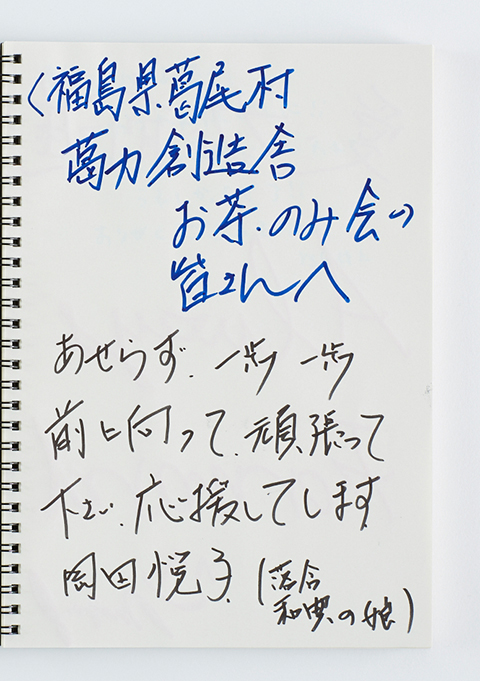 〈福島県葛尾村
葛力創造舎
お茶.のみ会の
皆さんへ
あせらず.一歩一歩
前に向って.頑張って
下さい.応援してします
岡田悦子.(落合
和典の娘)